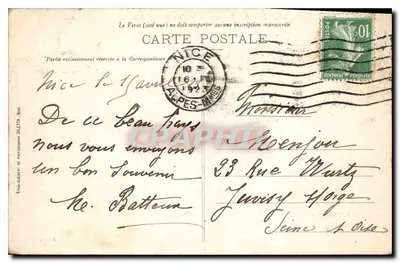 Le Verso (côté vue) ne doit comporter aucune inscription manuscrite
CARTE POSTALE
Partie exclusivement réservée à la Correspondance
NICE
10
16
1923
ALPES-MMES
POSTES
10
Nice le
De ce beau pays
nous vous envoyons
un bon souvenir
Me. Batteux
Monsieur
Menjou
23 Rue Wurtz
Juvisy s/ Orge
Seine et Oise
Cartes Postales